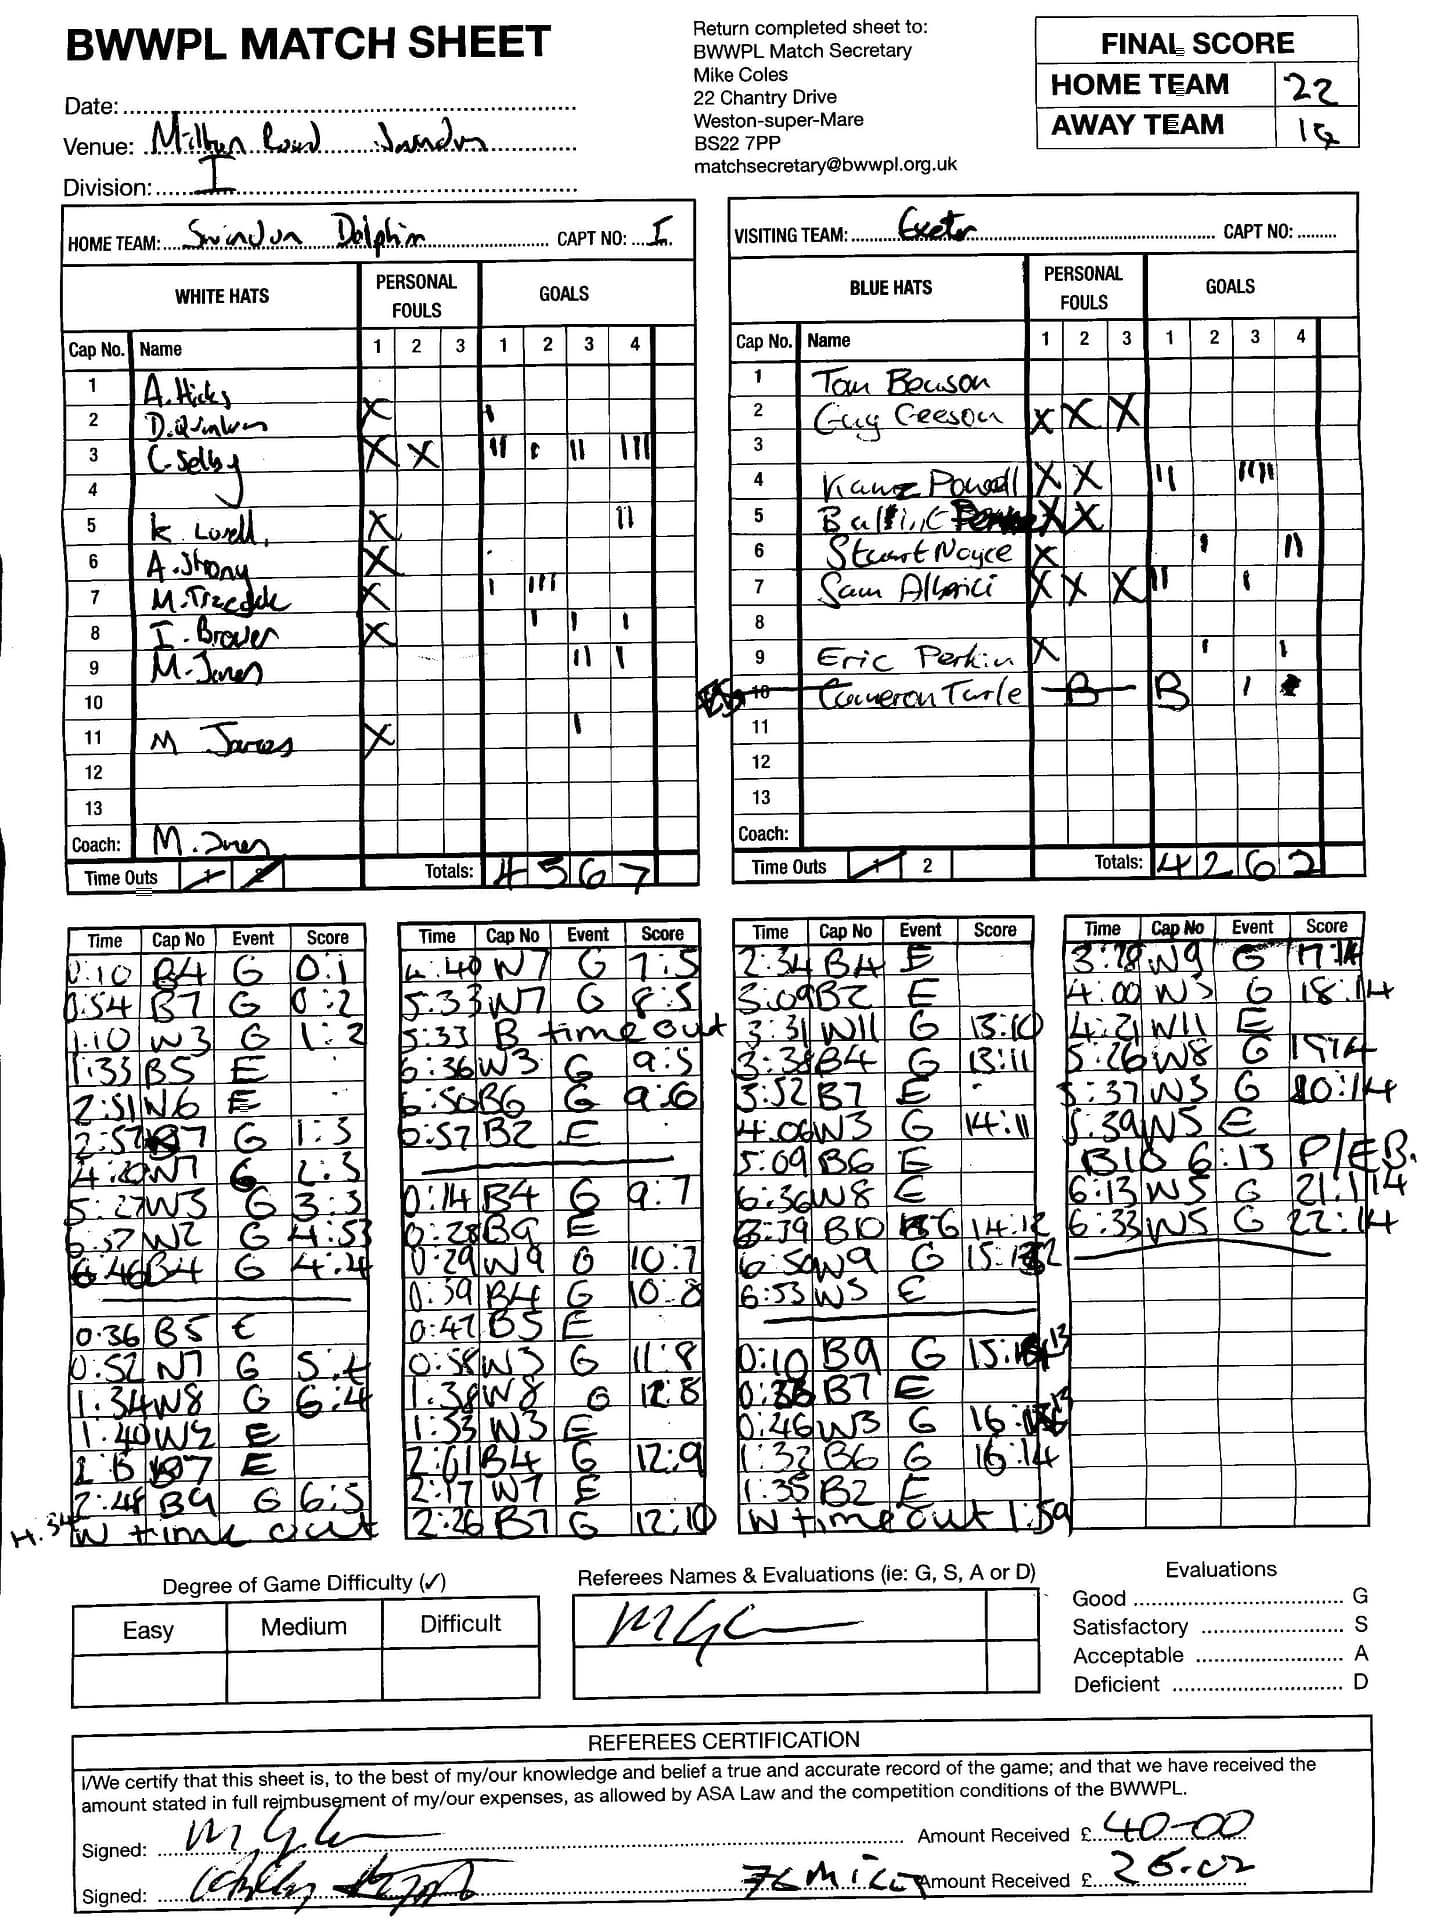 BWWPL MATCH SHEET
Return completed sheet to:
BWWPL Match Secretary
Mike Coles
22 Chantry Drive
Weston-super-Mare
BS22 7PP
matchsecretary@bwwpl.org.uk
FINAL SCORE
HOME TEAM 22
AWAY TEAM 14
Date:
Venue: Milton Road Swindon
Division: I
HOME TEAM: Swindon Dolphin CAPT NO: I
WHITE HATS PERSONAL FOULS GOALS
Cap No. Name 1 2 3 1 2 3 4
1 A. Hicks
2 D. Quinlan X I
3 C. Selby X X II I II IIII
4
5 K. Lovell X II
6 A. Strong X
7 M. X I III
8 I. Brover X I I I
9 M. Jones II I
10
11 M James X I
12
13
Coach: M. Jones
Time Outs 1 2 Totals: 4 5 6 7
VISITING TEAM: Exeter CAPT NO:
BLUE HATS PERSONAL FOULS GOALS
Cap No. Name 1 2 3 1 2 3 4
1 Tom Benson
2 Guy Geeson X X X
3
4 Powell X X II IIII
5 X X
6 Stuart Noyce X I II
7 Sam X X X II I
8
9 Eric Perkin X I I
10 Cameron Turle B B I
11
12
13
Coach:
Time Outs 1 2 Totals: 4 2 6 2
Time Cap No Event Score
0:10 B4 G 0:1
0:54 B7 G 0:2
1:10 W3 G 1:2
1:33 B5 E
2:51 W6 E
2:57 B7 G 1:3
4:20 W7 G 2:3
5:27 W3 G 3:3
W2 G
6:46 B4 G 4:4
0:36 B5 E
0:52 W7 G 5:4
1:34 W8 G 6:4
1:40 W2 E
B7 E
2:48 B9 G 6:5
W time out
Time Cap No Event Score
4:40 W7 G 7:5
5:33 W7 G 8:5
5:33 B time out
6:36 W3 G 9:5
6:50 B6 G 9:6
6:57 B2 E
0:14 B4 G 9:7
0:28 B9 E
0:29 W9 G 10:7
0:39 B4 G 10:8
0:47 B5 E
0:58 W3 G 11:8
1:38 W8 G 12:8
1:53 W3 E
2:01 B4 G 12:9
2:17 W7 E
2:26 B7 G 12:10
Time Cap No Event Score
2:34 B4 E
3:09 B2 E
3:31 W11 G 13:10
3:38 B4 G 13:11
3:52 B7 E
4:06 W3 G 14:11
5:09 B6 E
6:36 W8 E
6:39 B10 G 14:12
6:50 W9 G 15:12
6:53 W5 E
0:10 B9 G 15:13
B7 E
0:46 W3 G 16:13
1:32 B6 G 16:14
1:35 B2 E
W time out 1:59
Time Cap No Event Score
3:28 W9 G 17:14
4:00 W3 G 18:14
4:21 W11 E
5:26 W8 G 19:14
5:37 W3 G 20:14
5:39 W5 E
B10 6:13 P/EB.
6:13 W5 G 21:14
6:33 W5 G 22:14
Degree of Game Difficulty (✓)
Easy Medium Difficult
Referees Names & Evaluations (ie: G, S, A or D)
Evaluations
Good G
Satisfactory S
Acceptable A
Deficient D
REFEREES CERTIFICATION
I/We certify that this sheet is, to the best of my/our knowledge and belief a true and accurate record of the game; and that we have received the
amount stated in full reimbusement of my/our expenses, as allowed by ASA Law and the competition conditions of the BWWPL.
Signed: Amount Received £ 40-00
Signed: Amount Received £